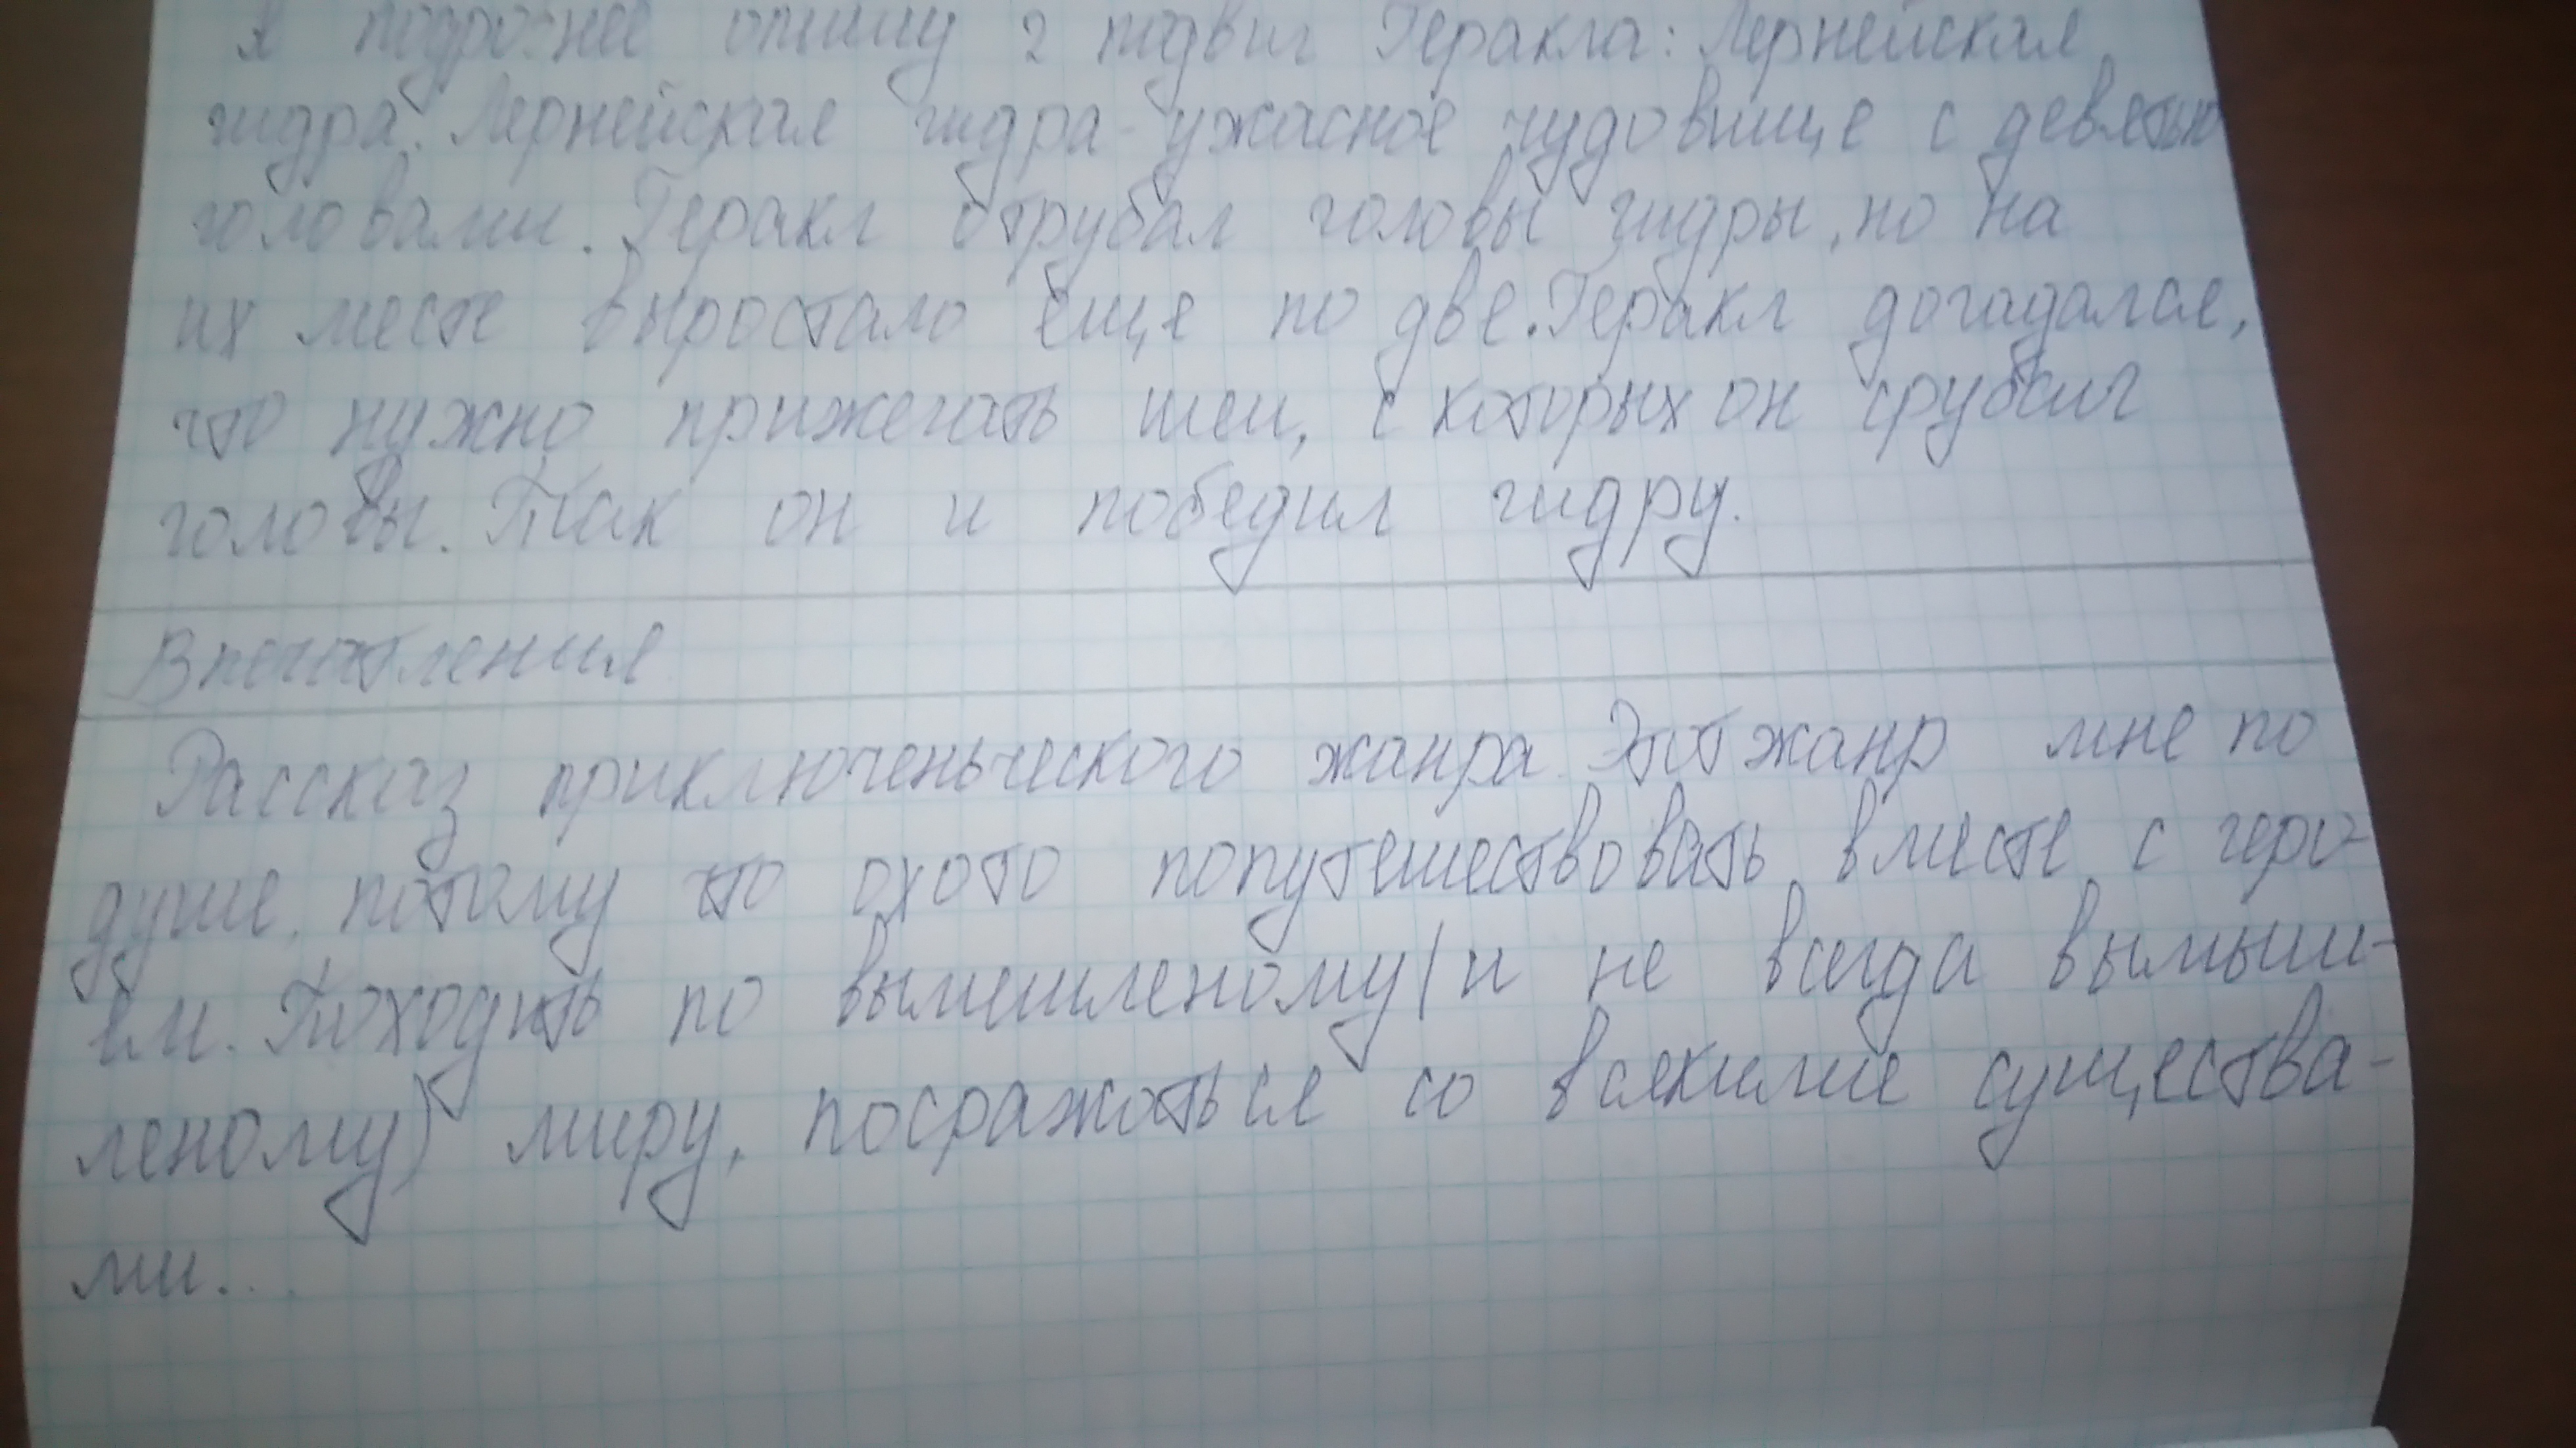 Я подробнее опишу 2 подвиг Геракла: Лернейская
гидра. Лернейская гидра - ужасное чудовище с девятью
головами. Геракл отрубал головы гидры, но на
их месте выростало еще по две. Геракл догадался,
что нужно прижегать шеи, с которых он срубил
головы. Так он и победил гидру.
Впечатления
Рассказ приключеньческого жанра. Этот жанр мне по
душе, потому что охото попутешествовать вместе с геро-
ем. Походить по вымешленому (и не всегда вымыш-
леному) миру, посражаться со всякими существа-
ми...